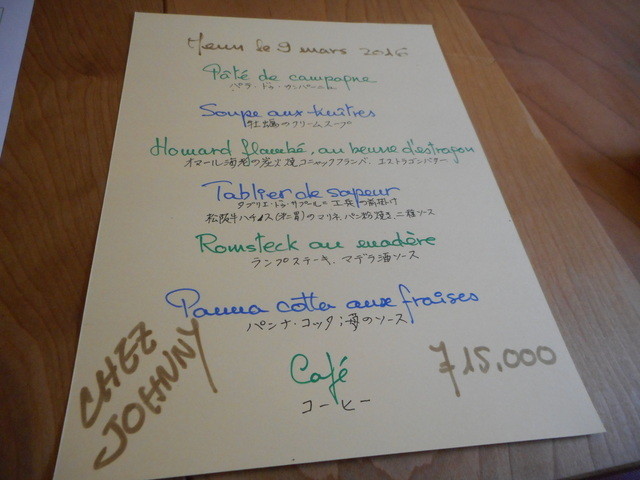 Menu le 9 mars 2016
Pâté de campagne
パテ・ドゥ・カンパーニュ
Soupe aux huîtres
牡蠣のクリームスープ
Homard flambé, au beurre d'estragon
オマール海老の炭火焼コニャックフランバ、エストラゴンバター
Tablier de sapeur
タブリエ・ドゥ・サプール=工兵の前掛け
松阪牛ハチノス(第二胃)のマリネ、パン粉焼き、二種ソース
Romsteck au madère
ランプステーキ、マデラ酒ソース
Panna cotta aux fraises
パンナ・コッタ;苺のソース
Café
コーヒー
CHEZ
JOHNNY
715.000